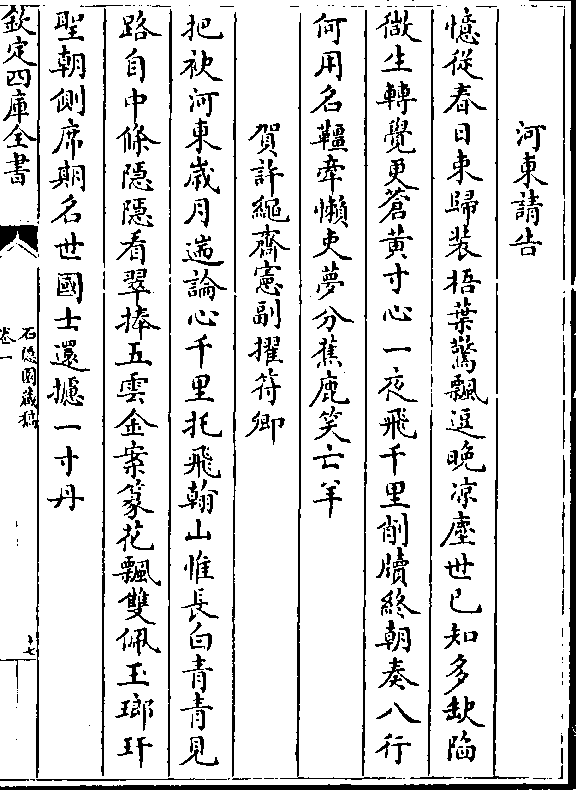 河東請告
憶從春日束歸装梧葉驚飄逗晚凉塵世已知多缺陷
㣲生轉覺更蒼黄寸心一夜飛千里削牘終朝奏八行
何用名韁牽懶吏夢分蕉鹿笑亡羊
賀許繩齋憲副擢符卿
把袂河東嵗月遄論心千里托飛翰山惟長白青青見
路自中條隠隠看翠捧五雲金案篆花飄雙佩玉瑯玕
聖朝側席期名世國士還攄一寸丹
欽定四庫全書
石隠園藏稿
卷一
十七